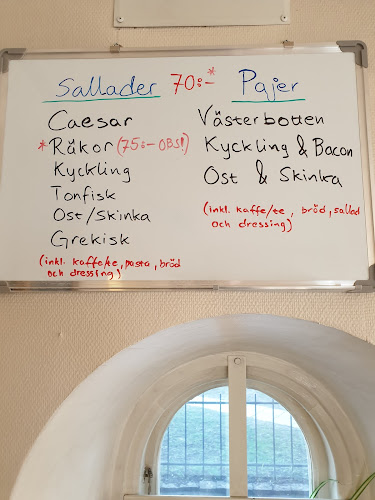 Sallader 70:-* Pajer
Caesar
*Räkor (75:- OBS!)
Kyckling
Tonfisk
Ost/Skinka
Grekisk
(inkl. kaffe/te, pasta, bröd
och dressing)
Västerbotten
Kyckling & Bacon
Ost & Skinka
(inkl. kaffe/te, bröd, sallad
och dressing)